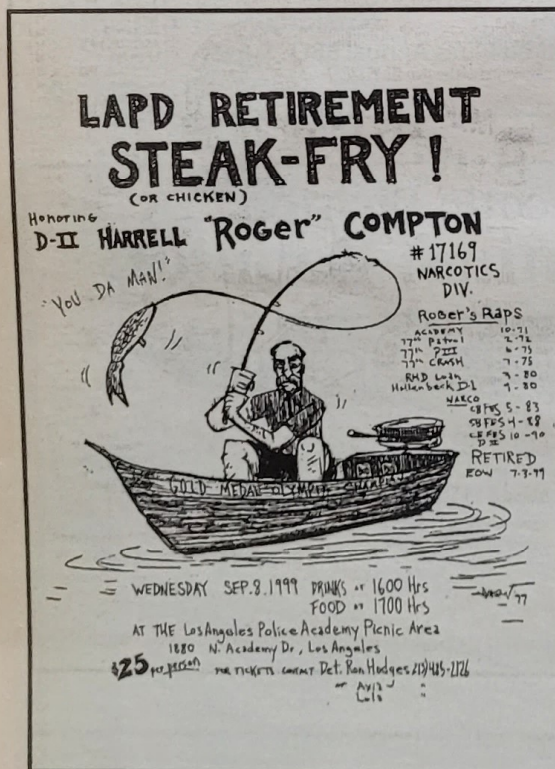 LAPD RETIREMENT
STEAK-FRY!
(OR CHICKEN)
HONORING
D-II HARRELL "Roger" COMPTON
#17169
NARCOTICS
DIV.
"YOU DA MAN!"
Roger's Raps
ACADEMY 10-71
77th Patrol 2-72
77th PIII 6-75
77th CRASH 7-75
RHD Loan 3-80
Hollenbeck D-I 9-80
NARCO
CBFES 5-83
SBFES 4-88
CBFES 10-90
D II
RETIRED
EOW 7-3-99
GOLD MEDAL OLYMPIC CHAMPION
WEDNESDAY SEP.8.1999 DRINKS AT 1600 Hrs
FOOD AT 1700 Hrs
AT THE Los Angeles Police Academy Picnic Area
1880 N. Academy Dr, Los Angeles
$25 per person FOR TICKETS CONTACT Det. Ron Hodges 213/485-2126
or